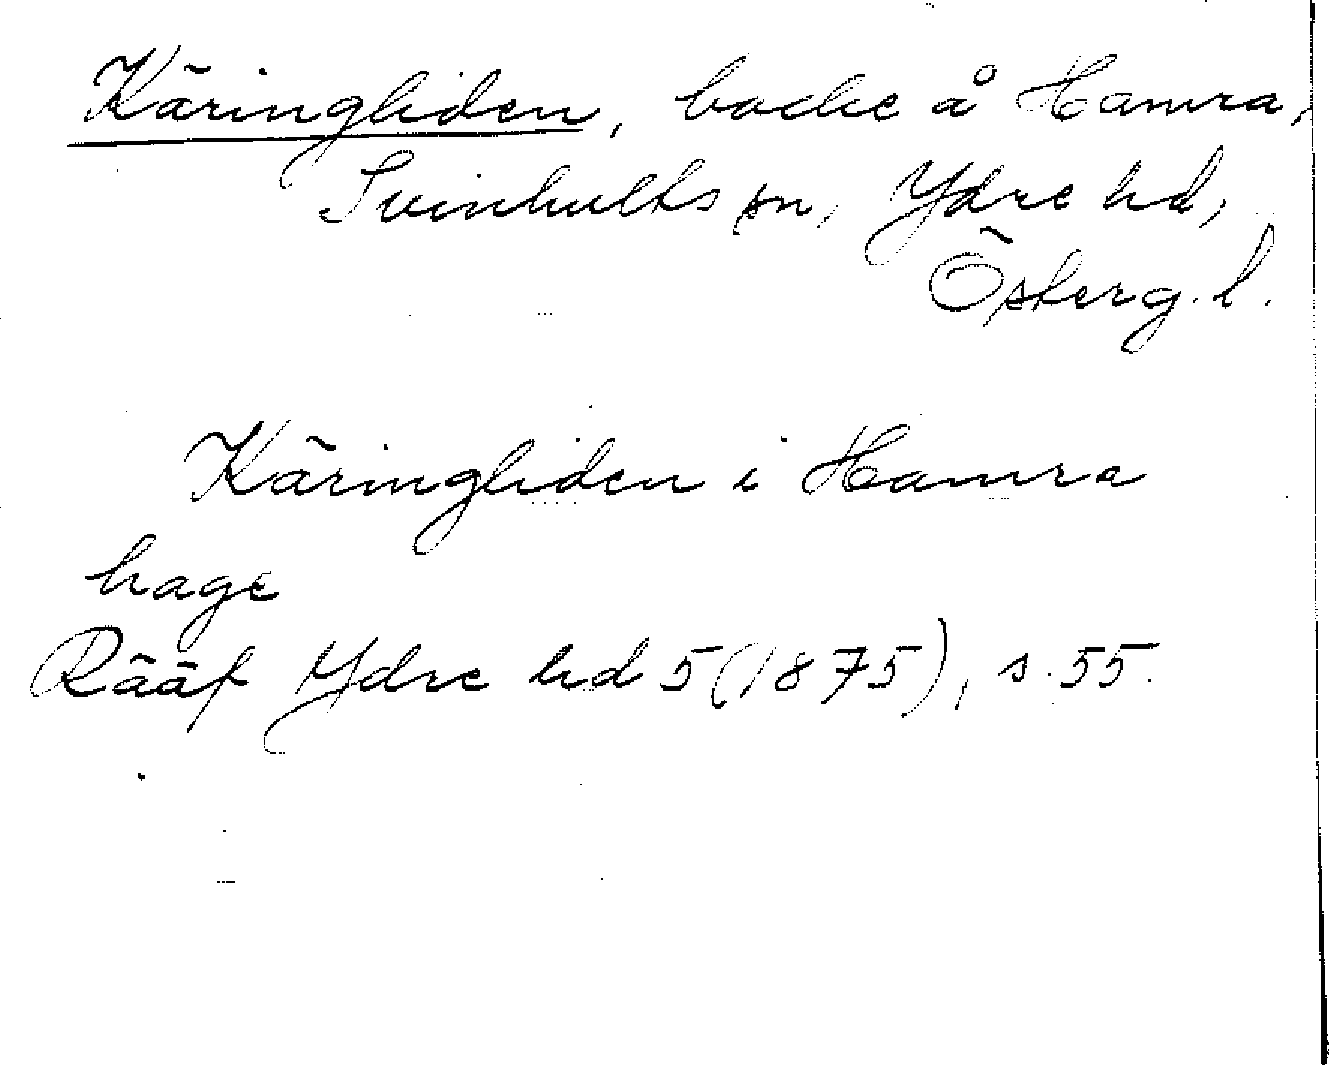 Käringliden, backe å Hamra,
Svinhults sn, Ydre hd,
Österg. l.
Käringliden i Hamra
hage
Rääf Ydre hd 5 (1875), s. 55.